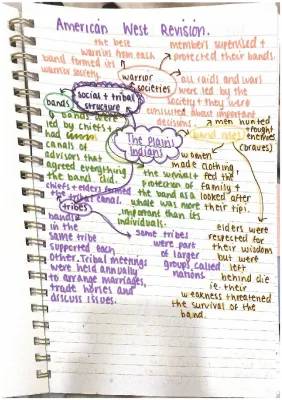 American West Revision.
the best
warriors from each
band formed its
warrior society
warrior
societies
members supervised +
protected their bands.
all raids and wars
were led by the
society + they were
consulted about important
decisions.
social + tribal
structure
bands
bands were
led by chiefs +
had
canals of
advisors that
agreed everything
the band did.
chiefs + elders formed
the tribal canal.
The Plains
Indians
band roles
men hunted
+ fought
enemies
(braves)
women
made clothing,
fed the
family +
looked after
their tipi.
the survival +
protection of
band as a
whole was more
important than its
individuals.
elders were
respected for
their wisdom
but were
left
behind die
ie. their
weakness threatened
the survival of the
band.
tribes
bands
in the
same tribe
supported each
other. Tribal meetings
were held annually
to arrange marriages,
trade horses and
discuss issues.
some tribes
were part
of larger
groups called
nations